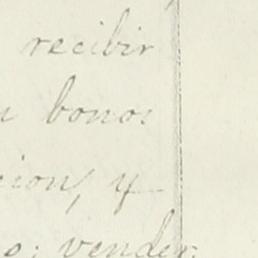 recibir
n bonos
cion, y
o; vender